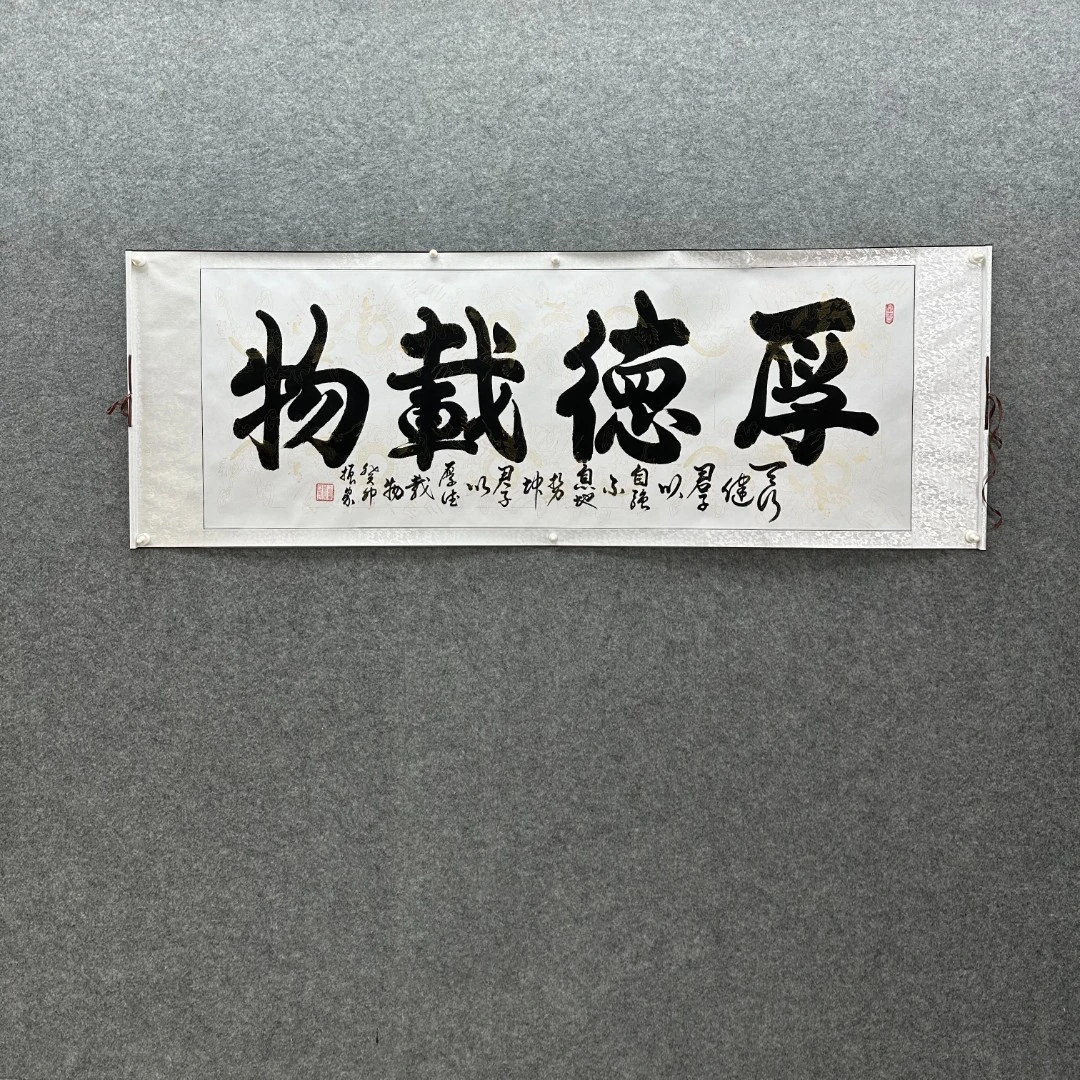 厚德載物
天行健君子以自強不息地势坤君子以厚德载物
癸卯振象